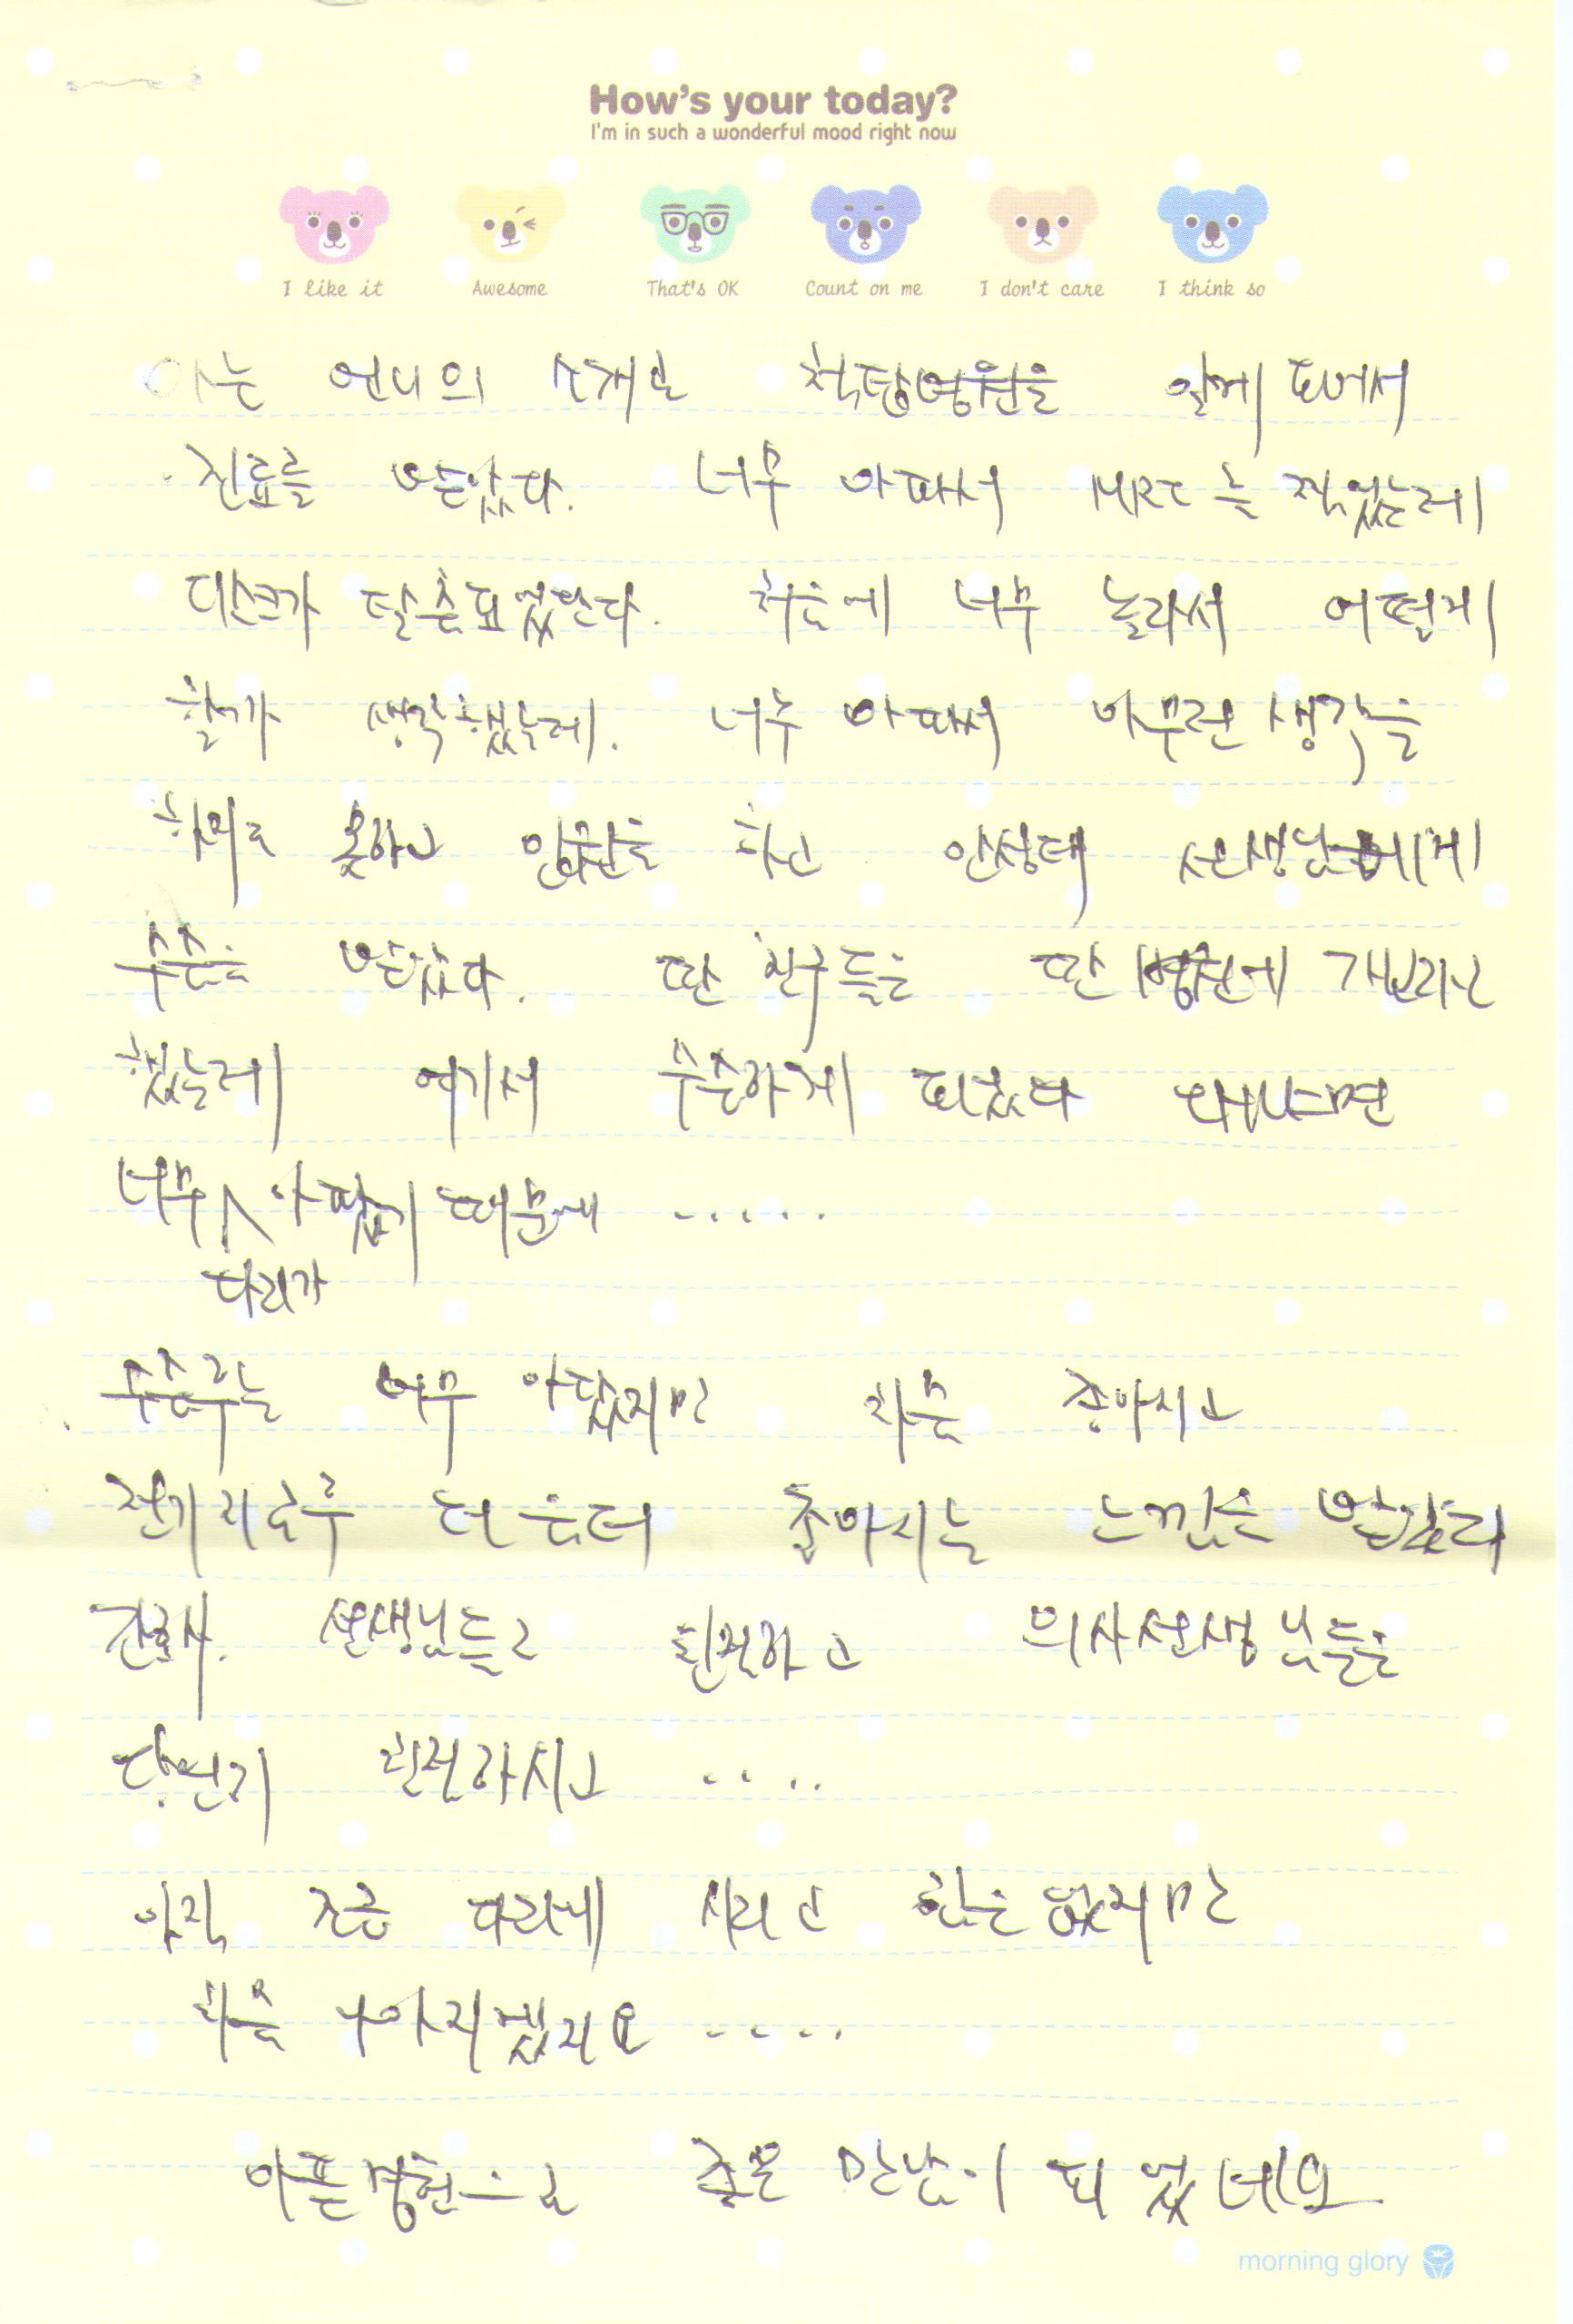 How's your today?
I'm in such a wonderful mood right now
I like it Awesome That's OK Count on me I don't care I think so
아는 언니의 소개로 척탑병원을 알게 되어서
진료를 받았다. 너무 아파서 MRI를 찍었는데
디스크가 탈출되었단다. 처음에 너무 놀라서 어떻게
할가 생각했는데. 너무 아파서 아무런 생각을
하지도 못하고 입원을 하고 안성태 선생님에게
수술을 받았다. 딴 친구들은 딴 병원에 가보라고
했는데 여기서 수술하게 되었다 왜냐하면
너무 다리가 아팠기 때문에 .....
수술후는 너무 아팠지만 차츰 좋아지고
전기치료후 더 욱더 좋아지는 느낌을 받았다
간호사. 선생님들도 친절하고 의사선생님들은
당연기 친절하시고 ....
아직 조금 다리에 시리고 힘은 없지만
차츰 나아지겠지요 ....
아픈경험으로 좋은 만남이 되었네요
morning glory